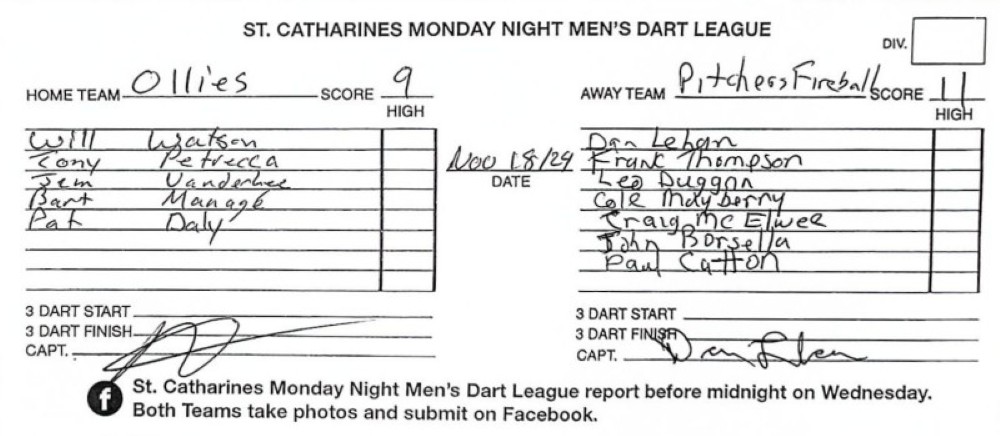 ST. CATHARINES MONDAY NIGHT MEN'S DART LEAGUE
DIV.
HOME TEAM Ollies SCORE 9
HIGH
AWAY TEAM Pitchers Fireball SCORE 11
HIGH
Will Watson
Tony Petrecca
Jem
Bart Manage
Pat Daly
Nov 18/24
DATE
Dan Lehan
Frank Thompson
Leo Duggan
Cole Mayberry
Craig Mc Elwee
John Borsella
Paul Catton
3 DART START
3 DART FINISH
CAPT.
3 DART START
3 DART FINISH
CAPT. Dan Lehan
St. Catharines Monday Night Men's Dart League report before midnight on Wednesday.
Both Teams take photos and submit on Facebook.